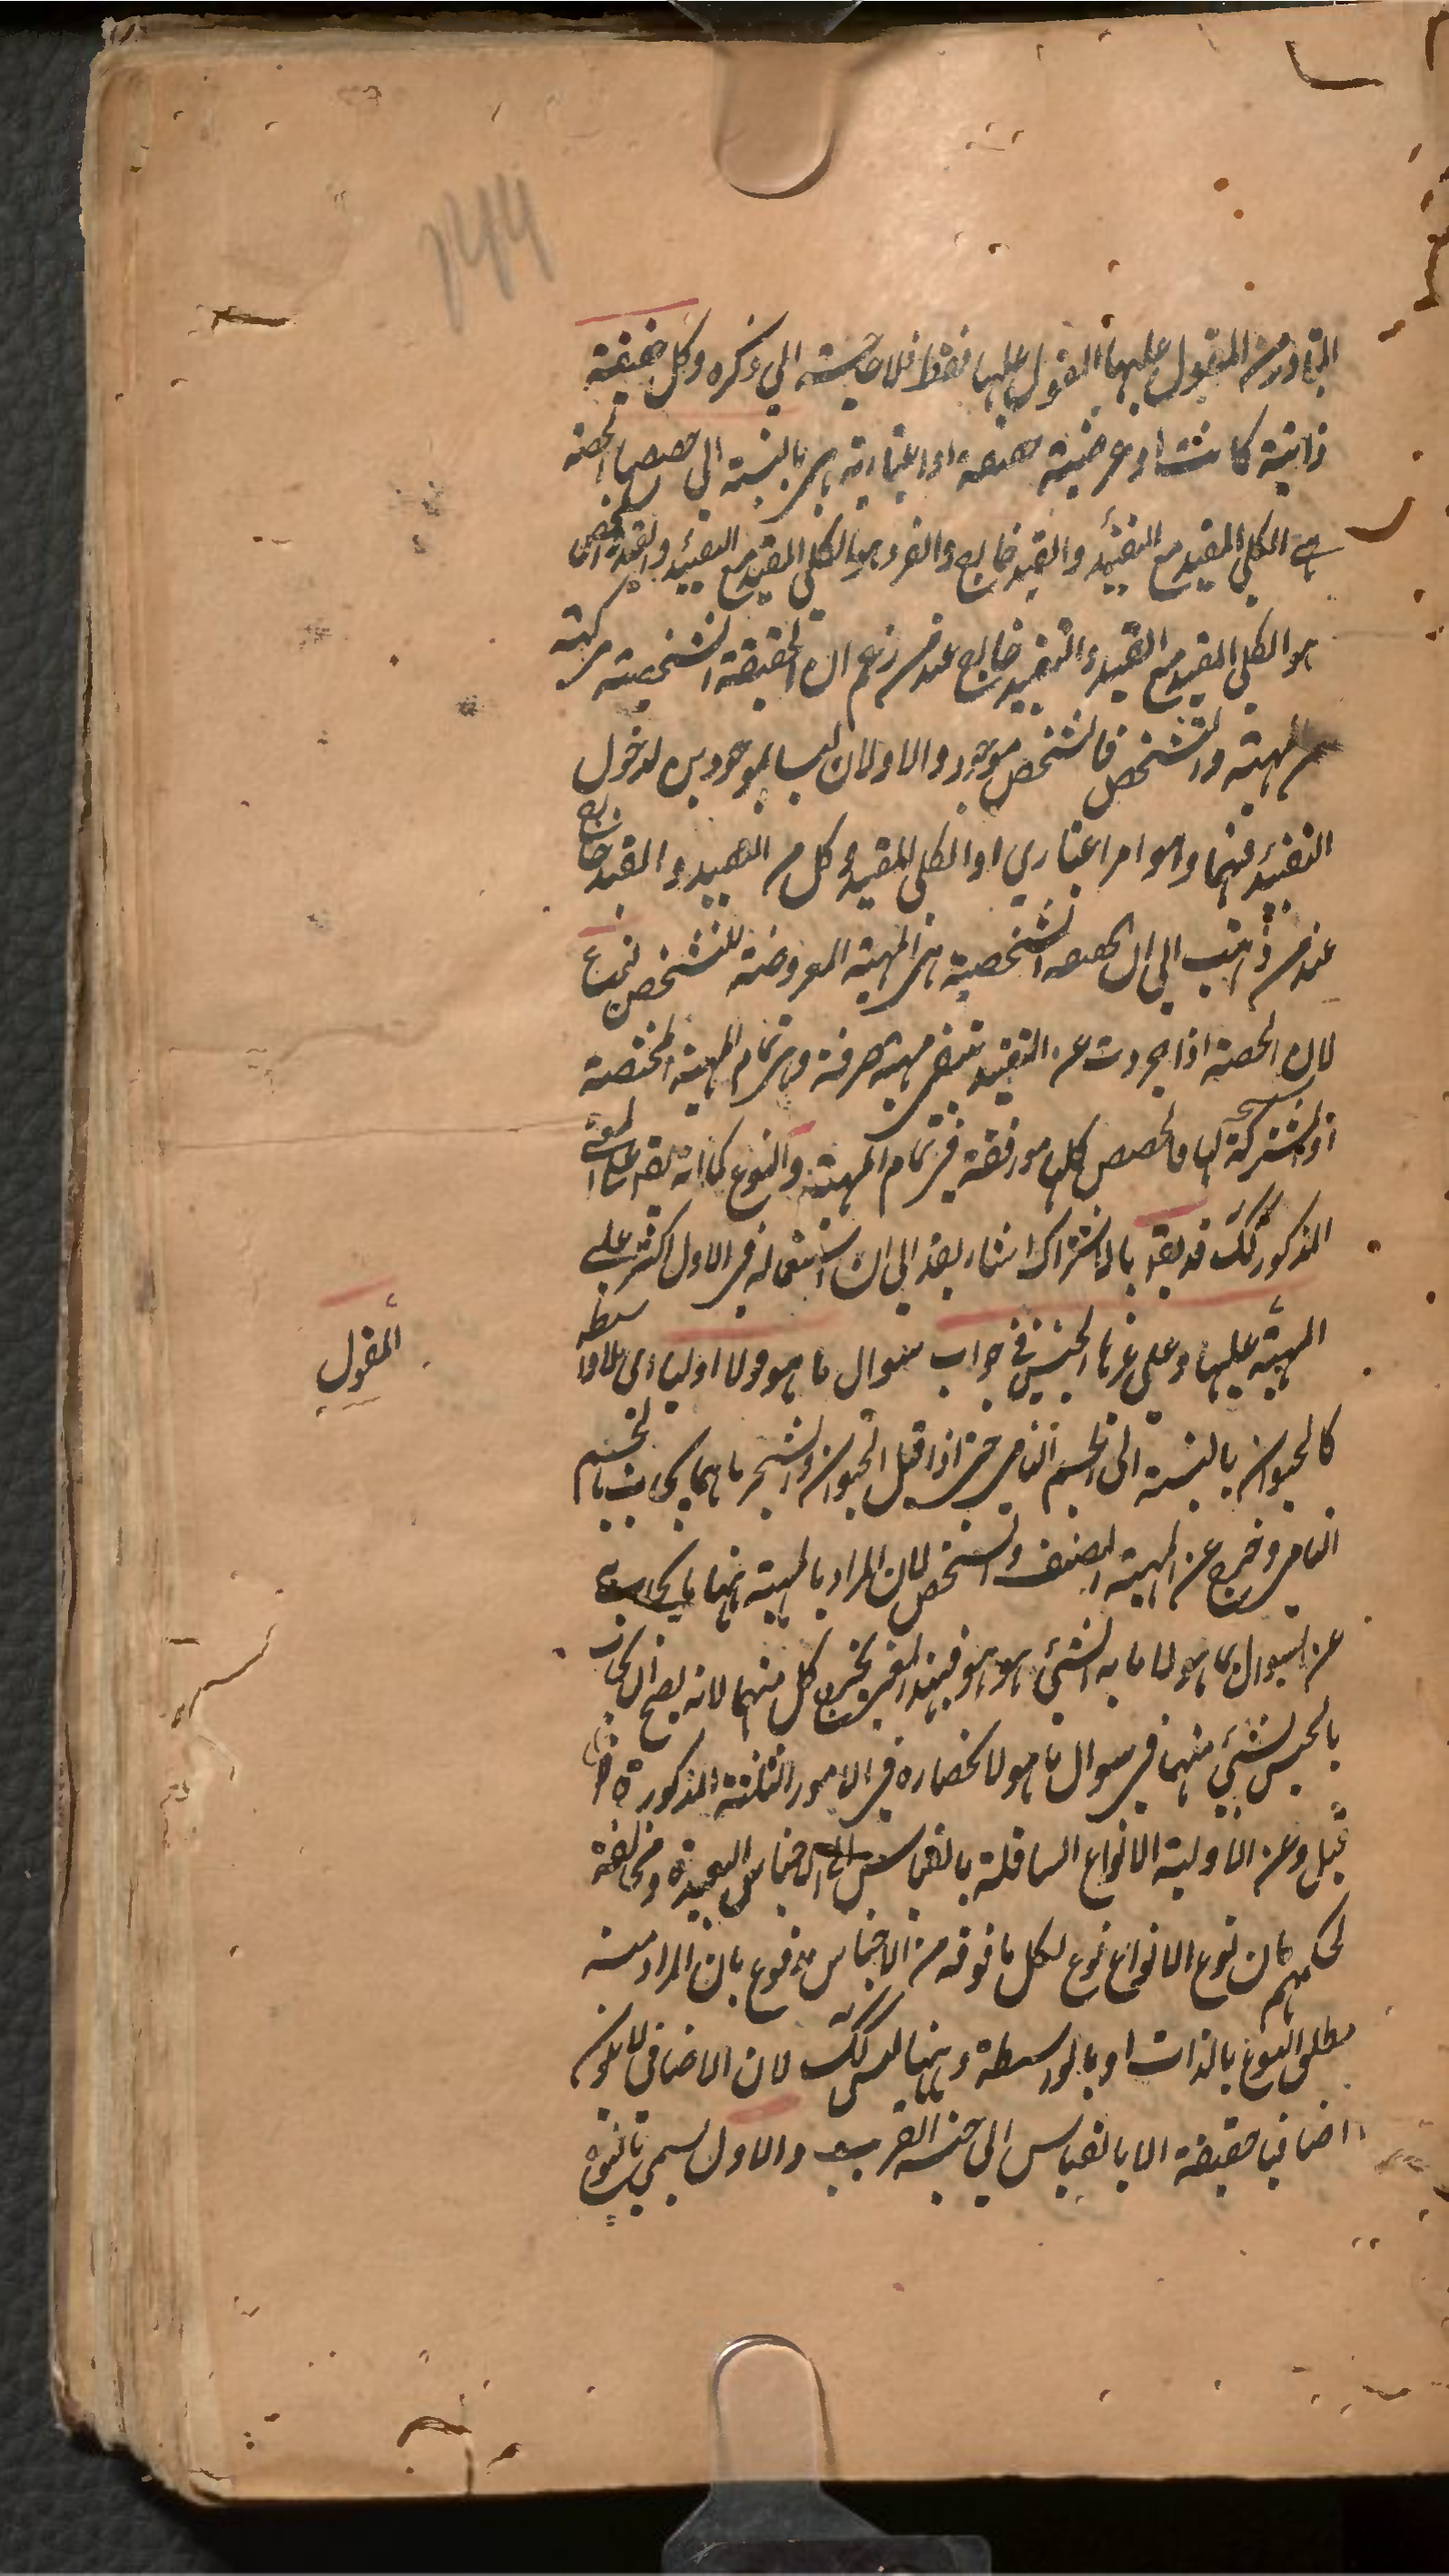 المتبادر من المقول عليها المقول عليها فقط فلا حاجة الى ذكره وكل حقيقة
ذاتية كانت او عرضية حقيقية او اعتبارية هى بالنسبة الى حصصها الحصة
هى الكلي المقيد مع التقييد والقيد خارج والفرد هو الكلي المقيد مع التقييد والقيد والشخص
هو الكلي المقيد مع القيد والتقييد خارج عند من زعم ان الحقيقة الشخصية مركبة
من المهية والتشخص فالشخص موجود والاولان ليسا بموجودين لدخول
التقييد فيهما وهو امر اعتباري او الكلي المقيد وكل من التقييد والقيد خارج
عند من ذهب الى ان الحقيقة الشخصية هى المهية المعروضة للتشخص نوع
لان الحصة اذا جردت عن التقييد تبقى مهية صرفة وهى تمام المهية المختصة
او المشتركة لها فالحصص كلها متفقة فى تمام المهية والنوع كما انه يقع على المعنى
المذكور كك قد يقع بالاشتراك اشار بقد الى ان استعماله فى الاول اكثر على
المهية المقول عليها وعلى غيرها الجنس فى جواب سوال ما هو قولا اوليا اى بلا واسطة
كالحيوان بالنسبة الى الجسم النامى حتى اذا قيل الحيوان والشجر ما هما يجاب بالجسم
النامى وخرج عن المهية الصنف والشخص لان المراد بالمهية ههنا ما يجاب به
عن السوال بما هو لا ما به الشيء هو هو فبهذا المعنى يخرج كل منهما لانه يصح ان يجاب
بالجنس لشيء منهما فى سوال ما هو لانحصاره فى الامور الثلثة المذكورة
قيل وعن الاولية الانواع السافلة بالقياس الى الاجناس البعيدة ومخالفة
لحكمهم بان نوع الانواع نوع لكل ما فوقه من الاجناس مدفوع بان المراد منه
مطلق النوع بالذات او بالواسطة وههنا ليس كك لان الاضافي لا يكون
اضافيا حقيقة الا بالقياس الى جنسه القريب والاول يسمى بالنوع
المقول